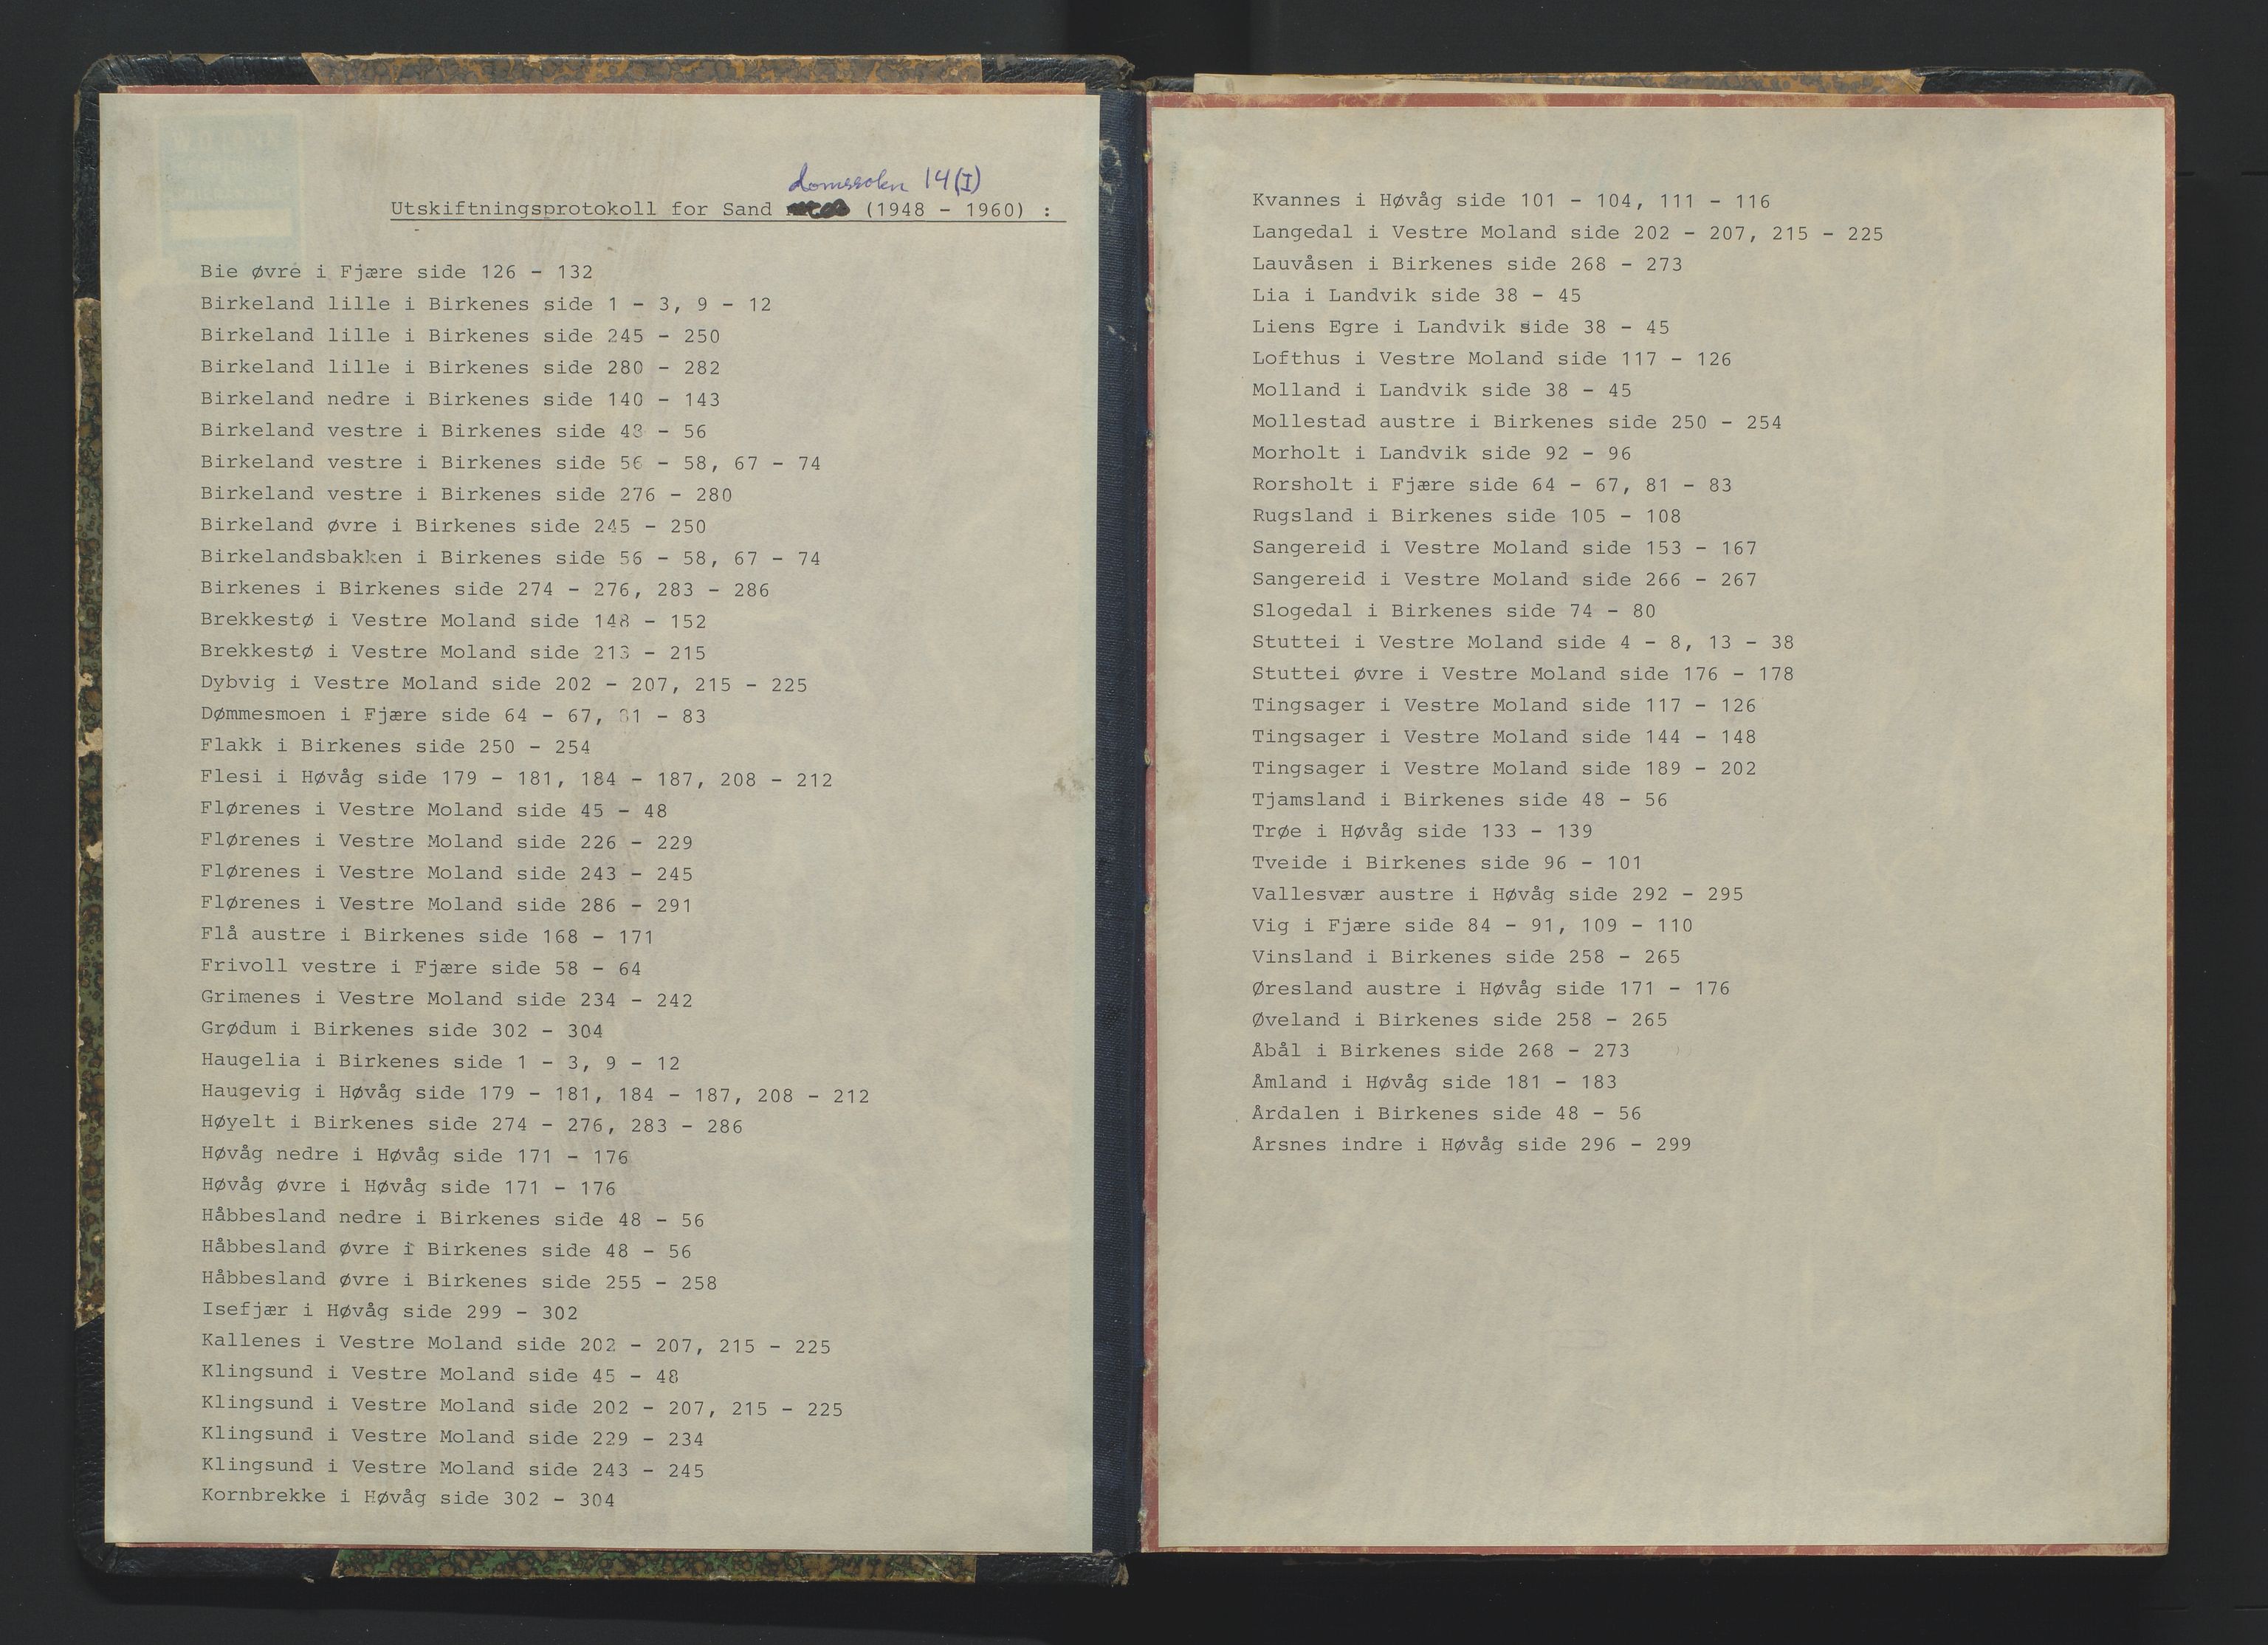 domssokn 14(I)
Utskiftningsprotokoll for Sand (1948 - 1960) :
Bie øvre i Fjære side 126 - 132
Birkeland lille i Birkenes side 1 - 3, 9 - 12
Birkeland lille i Birkenes side 245 - 250
Birkeland lille i Birkenes side 280 - 282
Birkeland nedre i Birkenes side 140 - 143
Birkeland vestre i Birkenes side 48 - 56
Birkeland vestre i Birkenes side 56 - 58, 67 - 74
Birkeland vestre i Birkenes side 276 - 280
Birkeland øvre i Birkenes side 245 - 250
Birkelandsbakken i Birkenes side 56 - 58, 67 - 74
Birkenes i Birkenes side 274 - 276, 283 - 286
Brekkestø i Vestre Moland side 148 - 152
Brekkestø i Vestre Moland side 213 - 215
Dybvig i Vestre Moland side 202 - 207, 215 - 225
Dømmesmoen i Fjære side 64 - 67, 81 - 83
Flakk i Birkenes side 250 - 254
Flesi i Høvåg side 179 - 181, 184 - 187, 208 - 212
Flørenes i Vestre Moland side 45 - 48
Flørenes i Vestre Moland side 226 - 229
Flørenes i Vestre Moland side 243 - 245
Flørenes i Vestre Moland side 286 - 291
Flå austre i Birkenes side 168 - 171
Frivoll vestre i Fjære side 58 - 64
Grimenes i Vestre Moland side 234 - 242
Grødum i Birkenes side 302 - 304
Haugelia i Birkenes side 1 - 3, 9 - 12
Haugevig i Høvåg side 179 - 181, 184 - 187, 208 - 212
Høyelt i Birkenes side 274 - 276, 283 - 286
Høvåg nedre i Høvåg side 171 - 176
Høvåg øvre i Høvåg side 171 - 176
Håbbesland nedre i Birkenes side 48 - 56
Håbbesland øvre i Birkenes side 48 - 56
Håbbesland øvre i Birkenes side 255 - 258
Isefjær i Høvåg side 299 - 302
Kallenes i Vestre Moland side 202 - 207, 215 - 225
Klingsund i Vestre Moland side 45 - 48
Klingsund i Vestre Moland side 202 - 207, 215 - 225
Klingsund i Vestre Moland side 229 - 234
Klingsund i Vestre Moland side 243 - 245
Kornbrekke i Høvåg side 302 - 304
Kvannes i Høvåg side 101 - 104, 111 - 116
Langedal i Vestre Moland side 202 - 207, 215 - 225
Lauvåsen i Birkenes side 268 - 273
Lia i Landvik side 38 - 45
Liens Egre i Landvik side 38 - 45
Lofthus i Vestre Moland side 117 - 126
Molland i Landvik side 38 - 45
Mollestad austre i Birkenes side 250 - 254
Morholt i Landvik side 92 - 96
Rorsholt i Fjære side 64 - 67, 81 - 83
Rugsland i Birkenes side 105 - 108
Sangereid i Vestre Moland side 153 - 167
Sangereid i Vestre Moland side 266 - 267
Slogedal i Birkenes side 74 - 80
Stuttei i Vestre Moland side 4 - 8, 13 - 38
Stuttei øvre i Vestre Moland side 176 - 178
Tingsager i Vestre Moland side 117 - 126
Tingsager i Vestre Moland side 144 - 148
Tingsager i Vestre Moland side 189 - 202
Tjamsland i Birkenes side 48 - 56
Trøe i Høvåg side 133 - 139
Tveide i Birkenes side 96 - 101
Vallesvær austre i Høvåg side 292 - 295
Vig i Fjære side 84 - 91, 109 - 110
Vinsland i Birkenes side 258 - 265
Øresland austre i Høvåg side 171 - 176
Øveland i Birkenes side 258 - 265
Åbål i Birkenes side 268 - 273
Åmland i Høvåg side 181 - 183
Årdalen i Birkenes side 48 - 56
Årsnes indre i Høvåg side 296 - 299